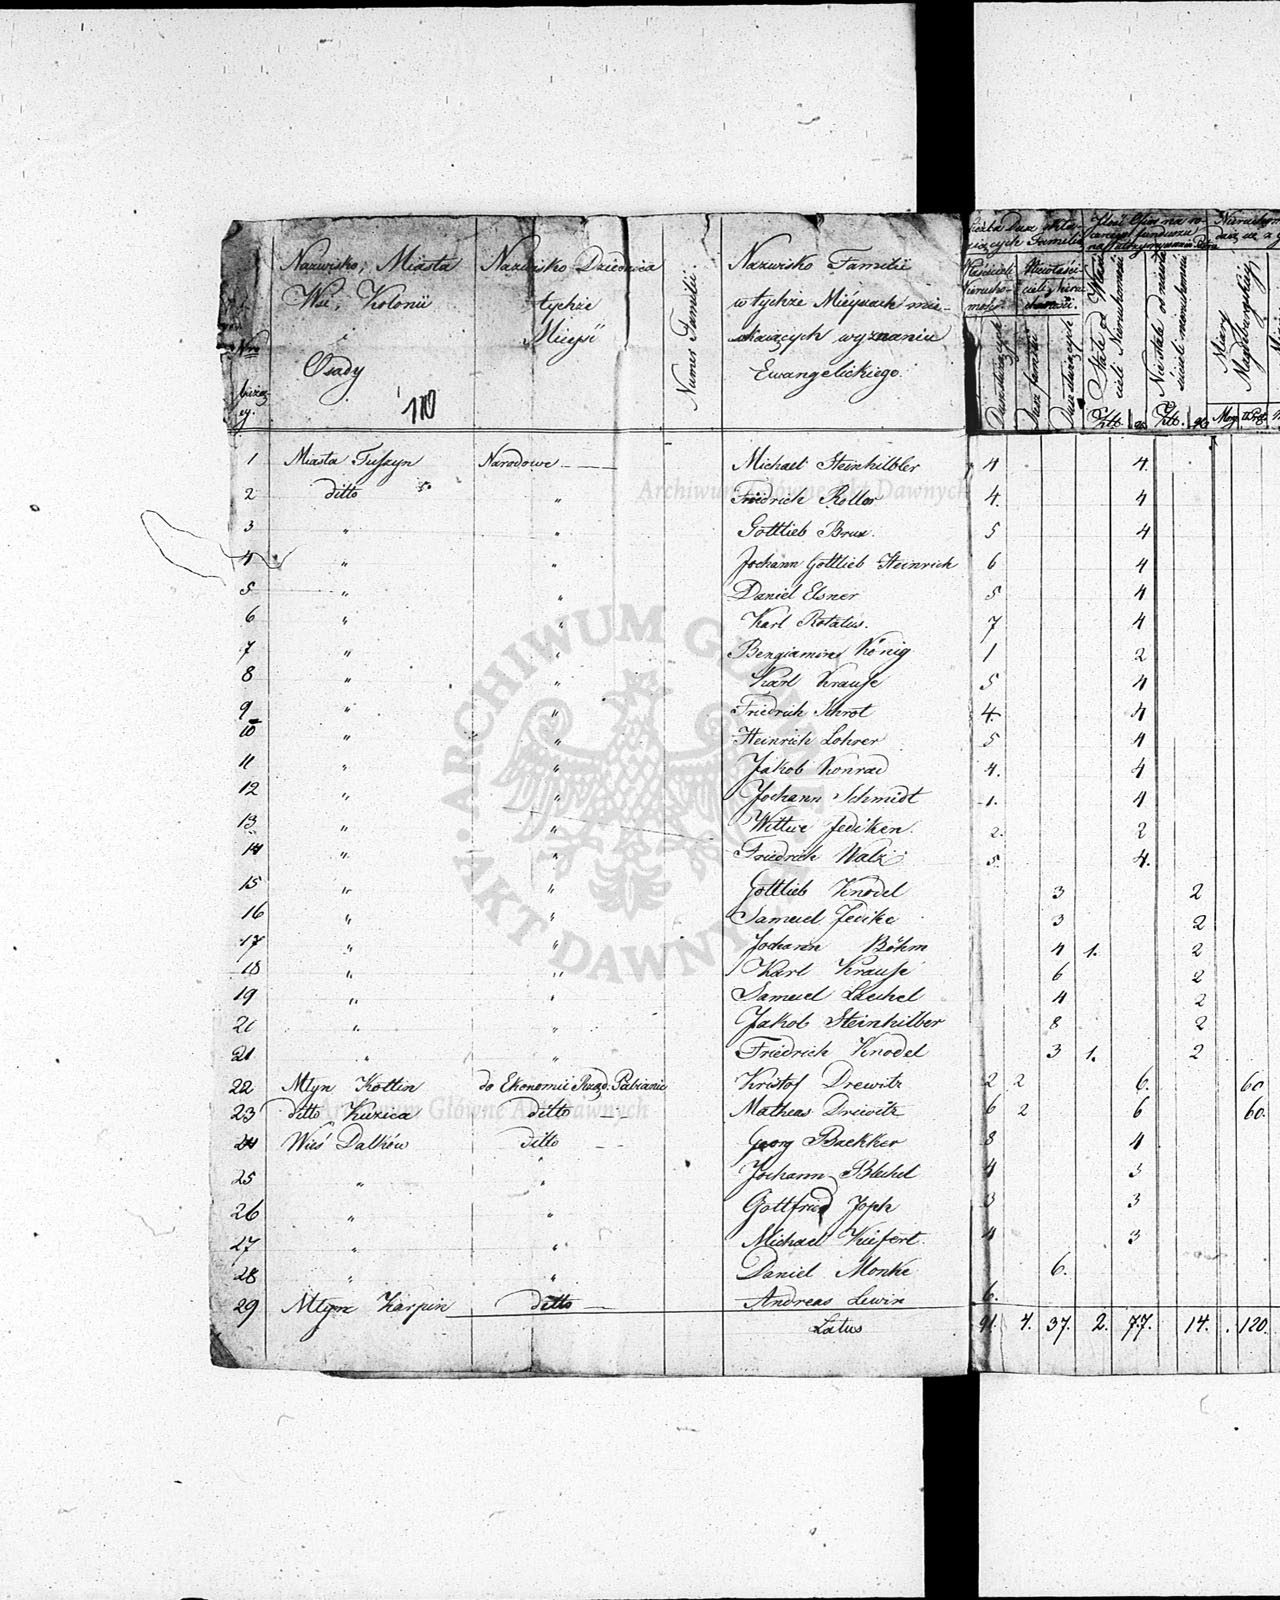 Nazwisko, Miasta Nazwisko Dziedzica Nazwisko Familii
Wsi, Kolonii tychże w tychże Mieyscach mie-
i Mieysc szkaiących wyznania
Osady Ewangelickiego.
Numer Familii
Nro
bieżą-
cy.
110
Miary Magdeburskiey
Dusz familii
Złt. gr. Złt. gr. Mor. Prt.
1 Miasto Tuszyn Narodowe Michael Steinhilbler 4 4.
2 ditto " Friedrich Roller 4. 4
3 " " Gottlieb Brux. 5 4
4 " " Johann Gottlieb Heinrich 6 4
5 " " Daniel Elsner 5 4
6 " " Karl Rotalus. 7 4
7 " " Bengiamin König 1 2
8 " " Karl Krause 5 4
9 " " Friedrich Schrot 4 4
10 " " Heinrich Lohrer 5 4
11 " " Jakob Konrad 4. 4
12 " " Johann Schmidt 1. 4
13 " " Wittwe Jediken. 2. 2
14 " " Friedrich Walz 5 4.
15 " " Gottlieb Knodel 3 2
16 " " Samuel Jedike 3 2
17 " " Johann Böhm 4 1. 2
18 " " Karl Krause 6 2
19 " " Samuel Laechel 4 2
20 " " Jakob Steinhilber 8 2
21 " " Friedrich Knodel 3 1. 2
22 Młyn Kotlin do Ekonomii Rząd. Pabianic Kristof Drewitz 2 2 6. 60
23 ditto Kuzica ditto Matheas Drewitz 6 2 6 60.
24 Wieś Dalków ditto Georg Baekker 8 4
25 " " Johann Blechel 4 3
26 " " Gottfried Joph 3 3
27 " " Michael Kiefert 4 3
28 " " Daniel Monke 6.
29 Młyn Karpin ditto Andreas Lewin 6.
Latus 91. 4. 37. 2. 77. 14. 120.
Archiwum Główne Akt Dawnych
ARCHIWUM GŁÓWNE AKT DAWNYCH
Archiwum Główne Akt Dawnych